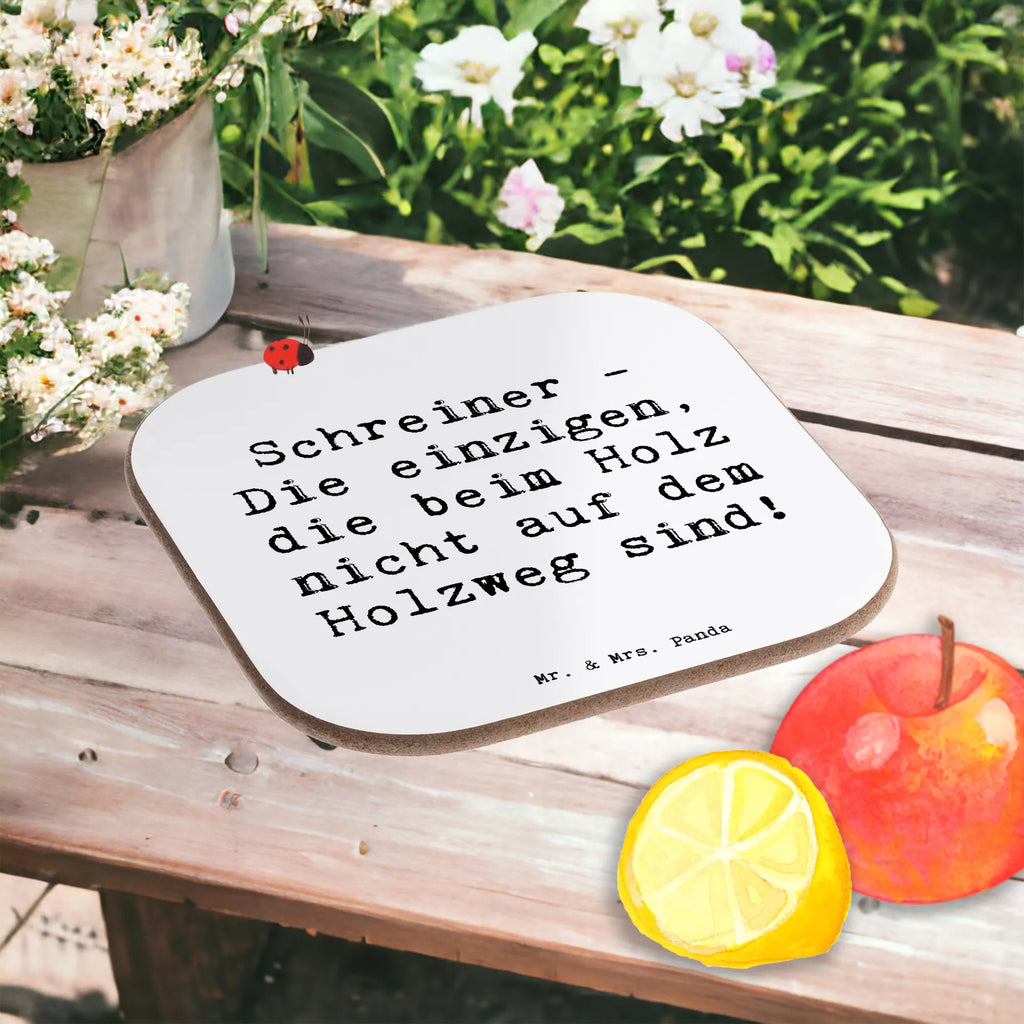 Schreiner -
Die einzigen,
die beim Holz
nicht auf dem
Holzweg sind!
Mr. & Mrs. Panda